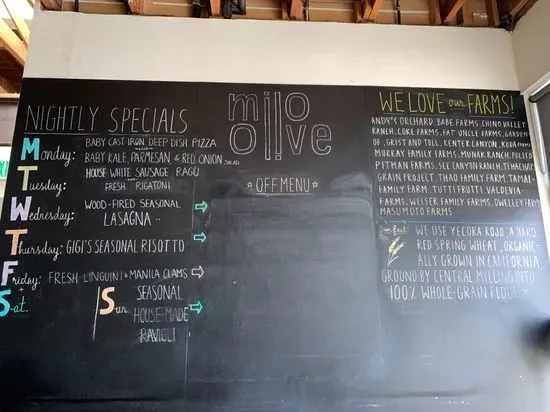 NIGHTLY SPECIALS
Monday: BABY CAST IRON DEEP DISH PIZZA
BABY KALE, PARMESAN & RED ONION SALAD
Tuesday: HOUSE WHITE SAUSAGE RAGU
FRESH RIGATONI
Wednesday: WOOD-FIRED SEASONAL
LASAGNA
Thursday: GIGI'S SEASONAL RISOTTO
Friday: FRESH LINGUINI & MANILA CLAMS
Sat.
Sun. SEASONAL
HOUSE-MADE
RAVIOLI
milo
olive
OFF MENU
WE LOVE our FARMS!
ANDY'S ORCHARD, BABE FARMS, CHINO VALLEY
RANCH, COKE FARMS, FAT UNCLE FARMS, GARDEN
OF, GRIST AND TOLL, KENTER CANYON, KODA FARMS
MURRAY FAMILY FARMS, MUNAK RANCH,
PITMAN FARMS, SEE CANYON RANCH, TEHACHAPI
GRAIN PROJECT, THAO FAMILY FARM, TAMAI
FAMILY FARM, TUTTI FRUTTI, VALDEVIA
FARMS, WEISER FAMILY FARMS, DWELLEY FARMS
MASUMOTO FARMS
WE USE YECORA ROJO, A HARD
RED SPRING WHEAT, ORGANIC-
ALLY GROWN IN CALIFORNIA
GROUND BY CENTRAL MILLING INTO
100% WHOLE-GRAIN FLOUR